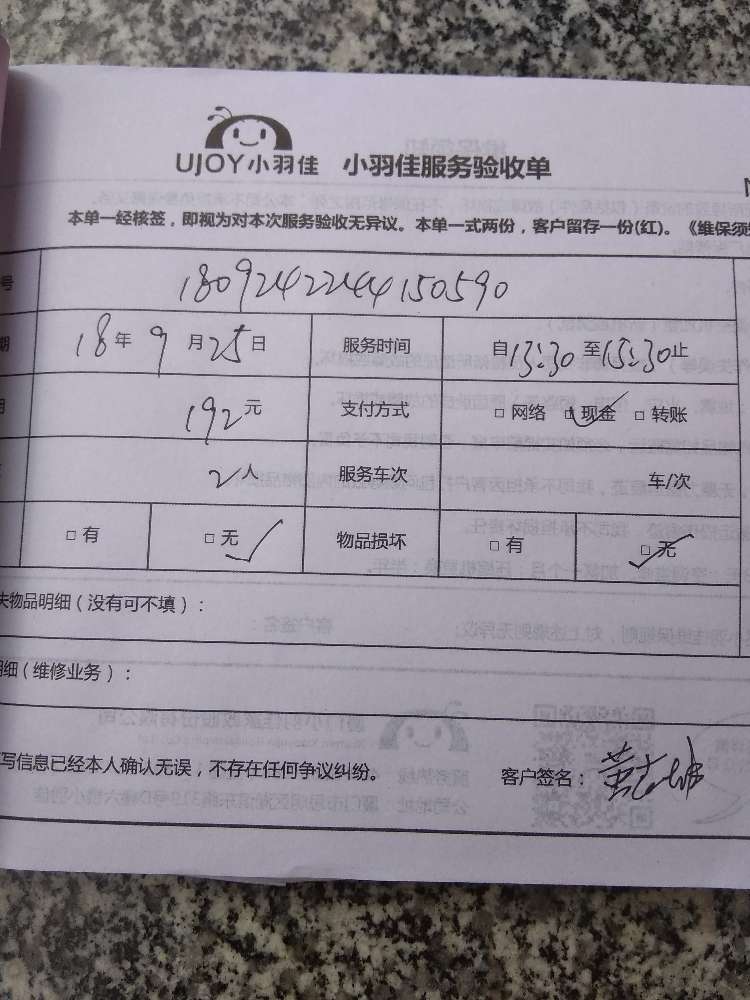 UJOY小羽佳 小羽佳服务验收单
本单一经核签，即视为对本次服务验收无异议。本单一式两份，客户留存一份(红)。《维保须
号 1809242244150590
期 18年9月25日 服务时间 自13:30至15:30止
用 192元 支付方式 □ 网络 ☑ 现金 □ 转账
2人 服务车次 车/次
□ 有 □ 无 ✓ 物品损坏 □ 有 □ 无 ✓
失物品明细（没有可不填）：
明细（维修业务）：
写信息已经本人确认无误，不存在任何争议纠纷。 客户签名：